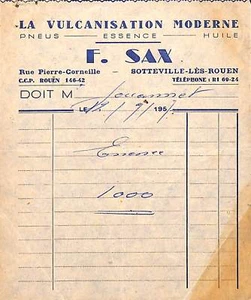 LA VULCANISATION MODERNE
PNEUS — ESSENCE — HUILE
F. SAX
Rue Pierre-Corneille — SOTTEVILLE-LÈS-ROUEN
C.C.P. ROUEN 146-42 TÉLÉPHONE : R1 60-24
DOIT M Jouannet
LE 195
Essence
1000